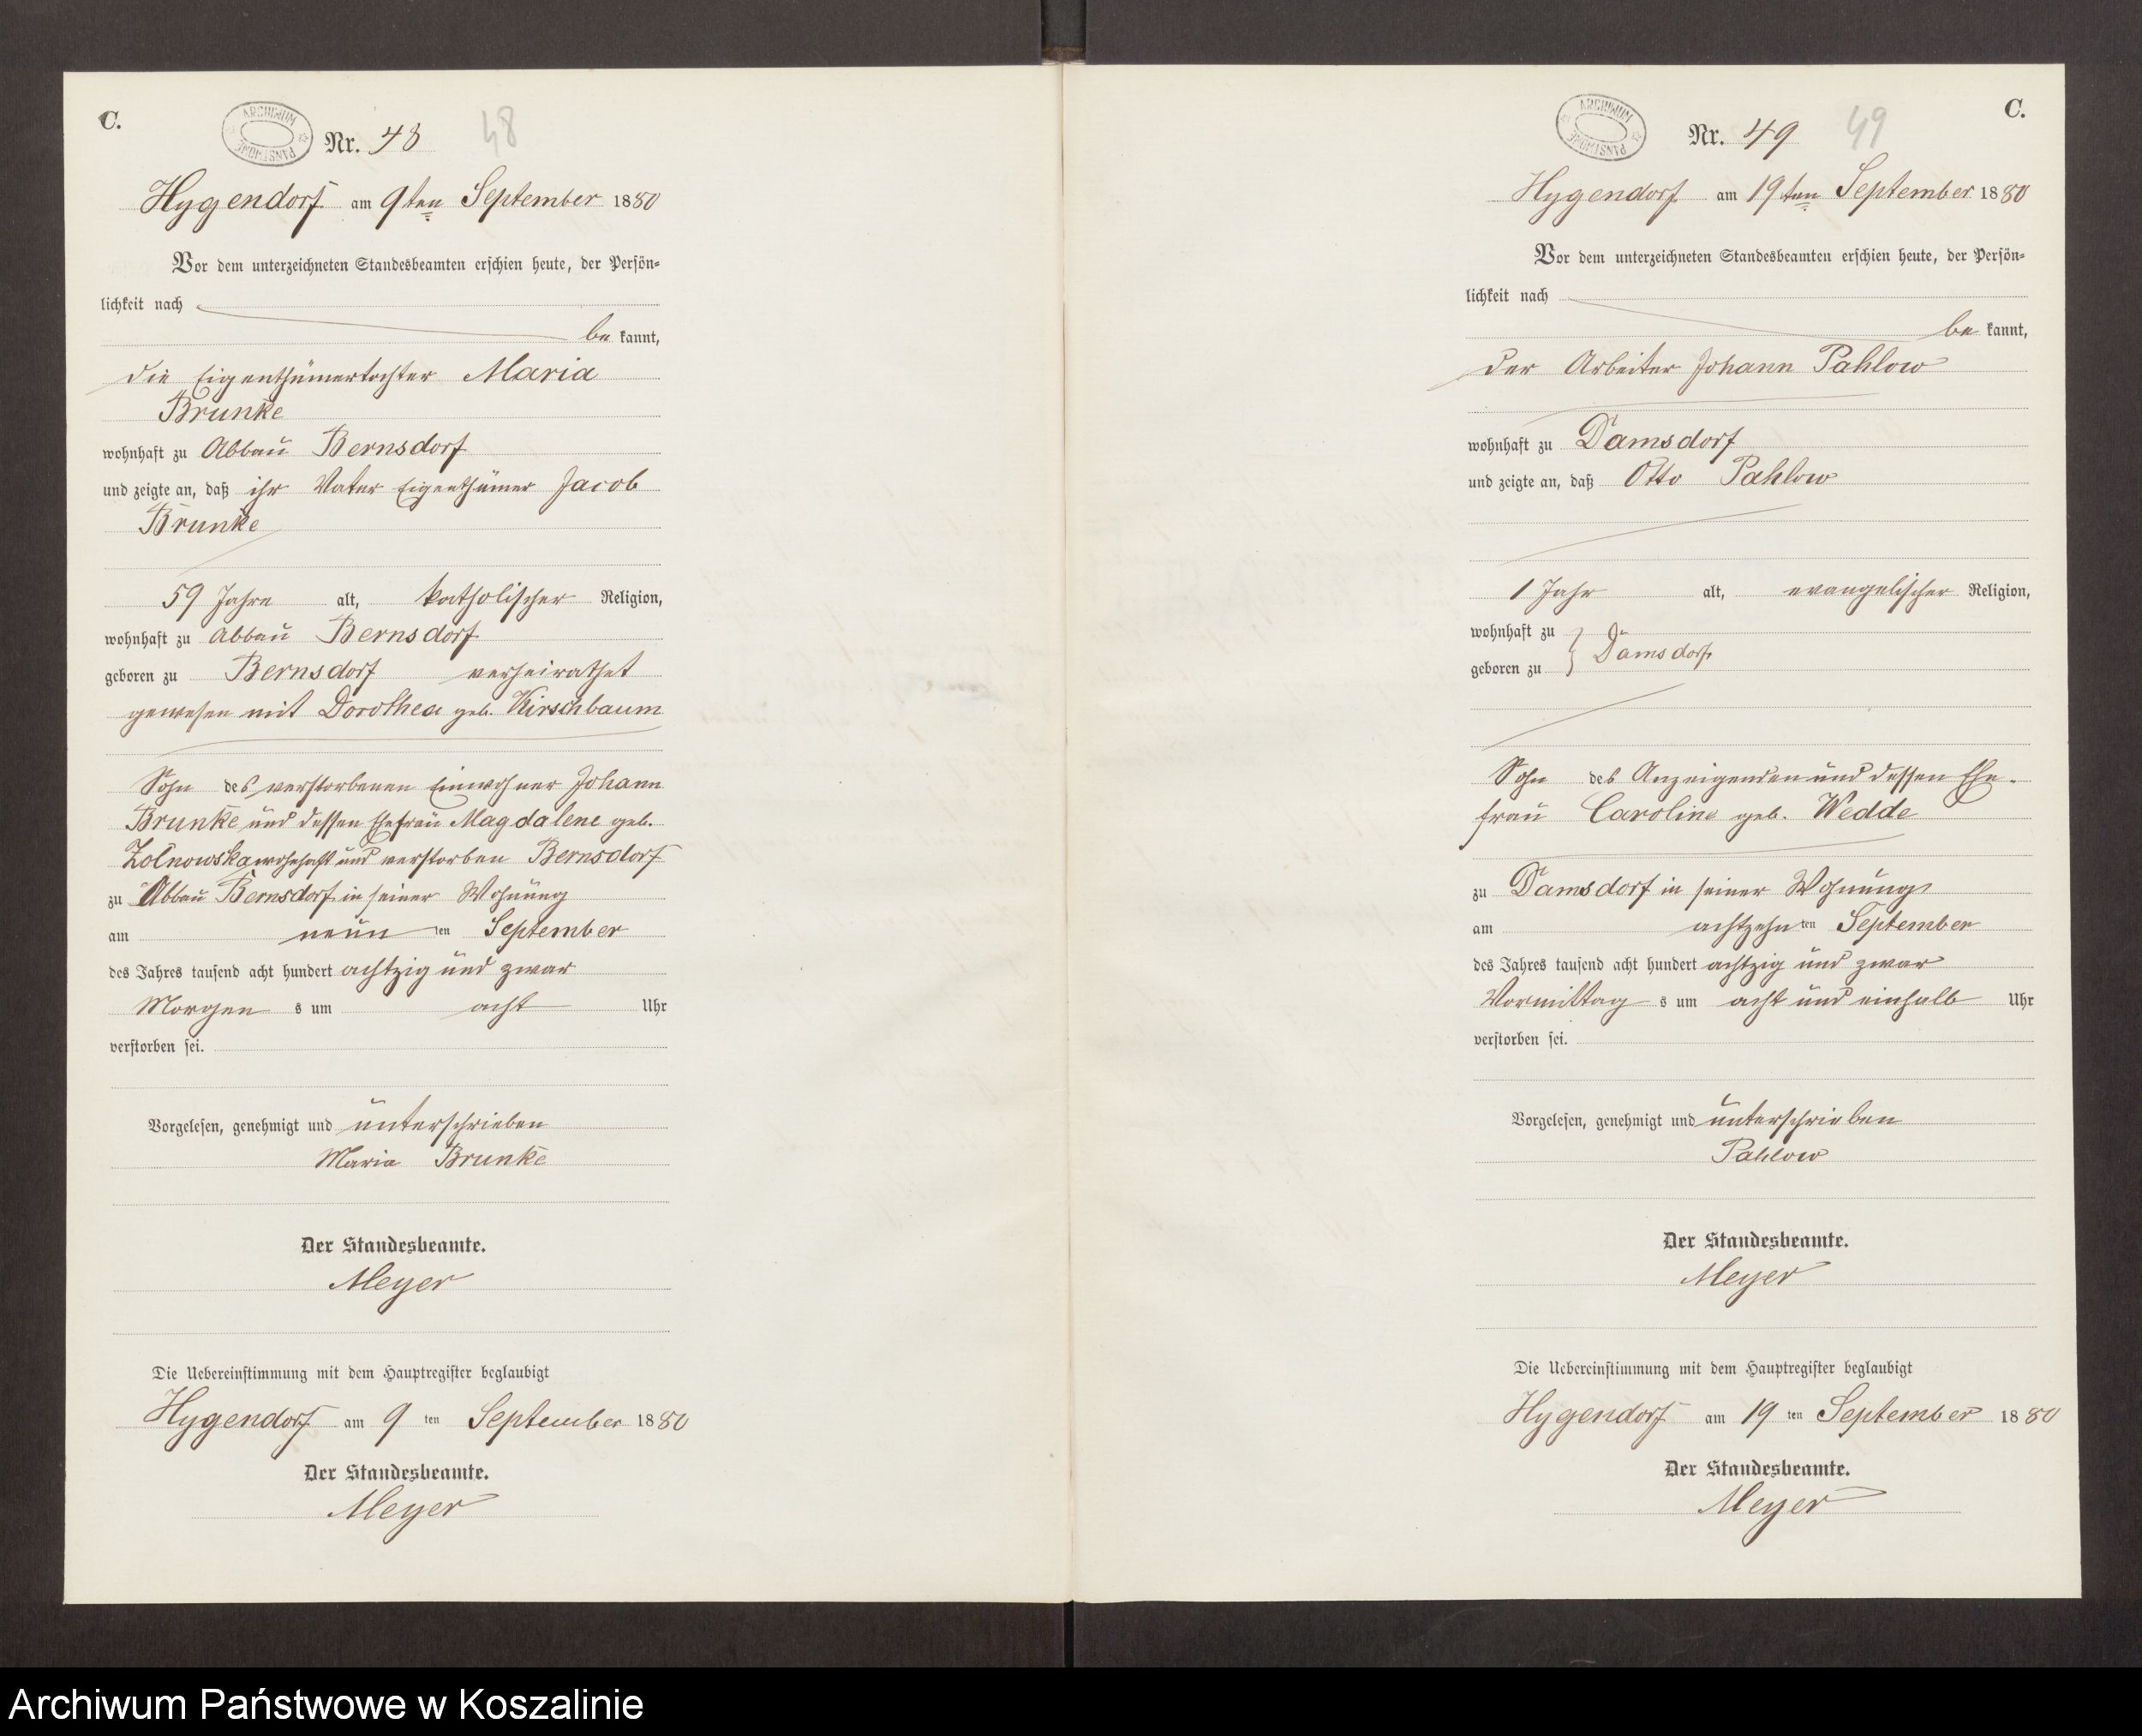 C.
ARCHIWUM PAŃSTWOWE
Nr. 48
48
Hygendorf am 9ten September 1880
Vor dem unterzeichneten Standesbeamten erschien heute, der Persön-
lichkeit nach
be kannt,
die Eigenthümertochter Maria
Brunke
wohnhaft zu Abbau Bernsdorf
und zeigte an, daß ihr Vater Eigenthümer Jacob
Brunke
59 Jahre alt, katholischer Religion,
wohnhaft zu Abbau Bernsdorf
geboren zu Bernsdorf verheirathet
gewesen mit Dorothea geb. Kirschbaum
Sohn des verstorbenen Einwohner Johann
Brunke und dessen Ehefrau Magdalene geb.
Zolnowska wohnhaft und verstorben Bernsdorf
zu Abbau Bernsdorf in seiner Wohnung
am neun ten September
des Jahres tausend acht hundert achtzig und zwar
Morgen s um acht Uhr
verstorben sei.
Vorgelesen, genehmigt und unterschrieben
Maria Brunke
Der Standesbeamte.
Meyer
Die Uebereinstimmung mit dem Hauptregister beglaubigt
Hygendorf am 9 ten September 1880
Der Standesbeamte.
Meyer
C.
ARCHIWUM PAŃSTWOWE
Nr. 49
49
Hygendorf am 19ten September 1880
Vor dem unterzeichneten Standesbeamten erschien heute, der Persön-
lichkeit nach
be kannt,
der Arbeiter Johann Pahlow
wohnhaft zu Damsdorf
und zeigte an, daß Otto Pahlow
1 Jahr alt, evangelischer Religion,
wohnhaft zu
geboren zu } Damsdorf
Sohn des Anzeigenden und dessen Ehe-
frau Caroline geb. Wedde
zu Damsdorf in seiner Wohnung
am achtzehn ten September
des Jahres tausend acht hundert achtzig und zwar
Vormittag s um acht und einhalb Uhr
verstorben sei.
Vorgelesen, genehmigt und unterschrieben
Pahlow
Der Standesbeamte.
Meyer
Die Uebereinstimmung mit dem Hauptregister beglaubigt
Hygendorf am 19 ten September 1880
Der Standesbeamte.
Meyer
Archiwum Państwowe w Koszalinie